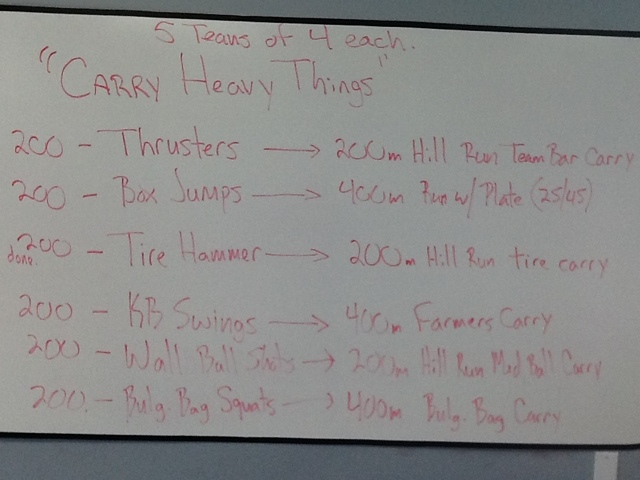 5 Teams of 4 each.
"CARRY Heavy Things"
200 - Thrusters → 200m Hill Run Team Bar Carry
200 - Box Jumps → 400m Run w/ Plate (25/45)
200 - Tire Hammer → 200m Hill Run tire carry
done.
200 - KB Swings → 400m Farmers Carry
200 - Wall Ball Shots → 200m Hill Run Med Ball Carry
200. - Bulg. Bag Squats → 400m Bulg. Bag Carry